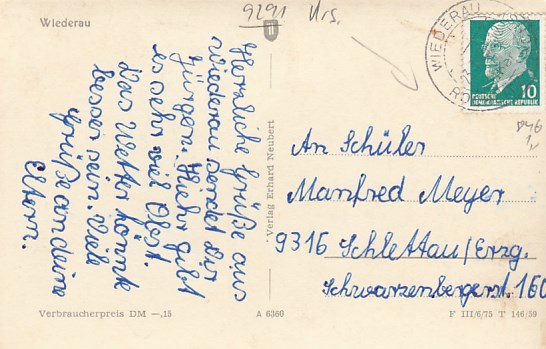 Wiederau
9291 Urs.
WIEDERAU
DEUTSCHE
DEMOKRATISCHE REPUBLIK
10
Herzliche Grüße aus
Wiederau sendet Dir
Jürgen. Hiehr gibt
es sehr viel Obst.
Das Wetter könnte
besser sein. Viele
Grüße an deine
Eltern.
Verlag Erhard Neubert
An Schüler
Manfred Meyer
9316 Schlettau/Erzg.
Schwarzenbergerst. 160
Verbraucherpreis DM —.15
A 6360
F III/6/75 T 146/59